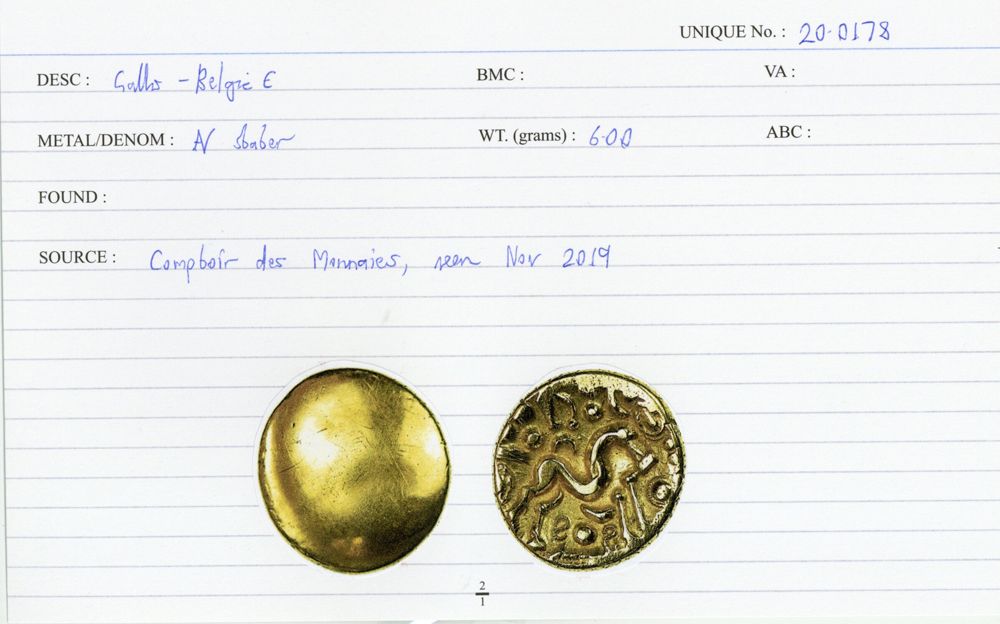 UNIQUE No. : 20-0178
DESC : Gallo-Belgic E BMC : VA :
METAL/DENOM : AV stater WT. (grams) : 6.00 ABC :
FOUND :
SOURCE : Comptoir des Monnaies, seen Nov 2019
2
1